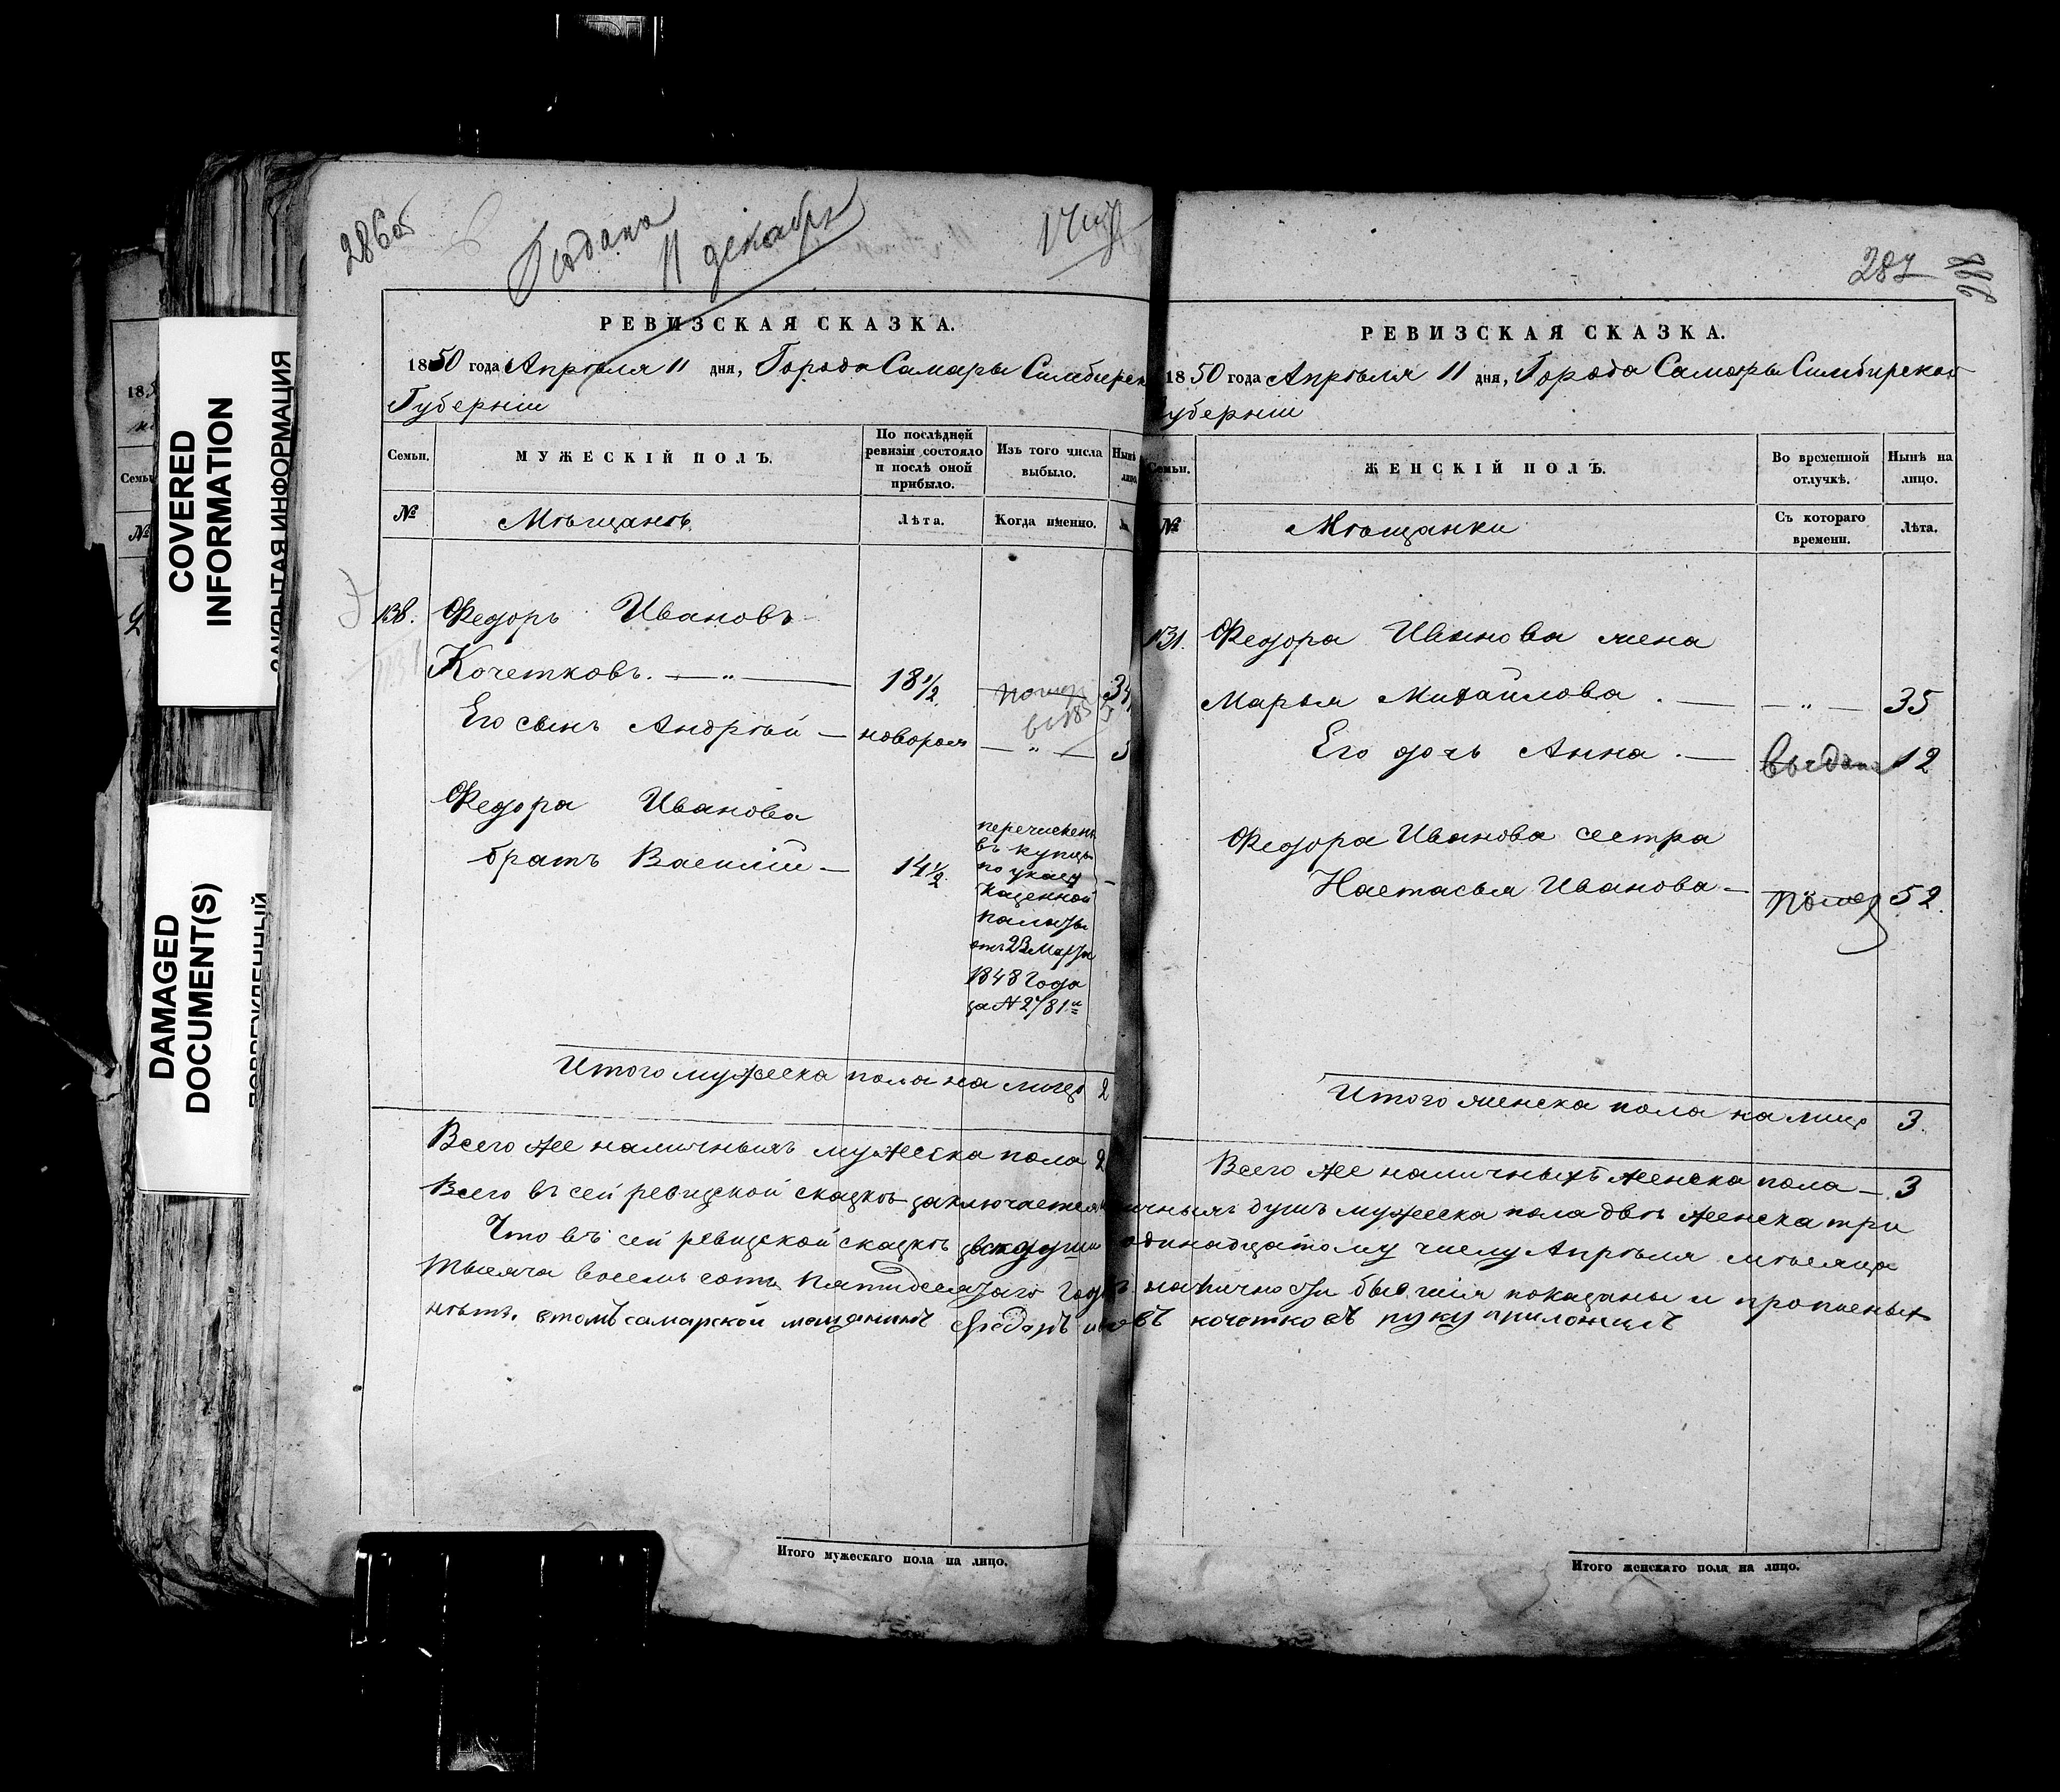 286об
Подана
11 декабря
287
РЕВИЗСКАЯ СКАЗКА.
1850 года Апрѣля 11 дня, Города Самары Симбирск
Губерніи
Семьи.
МУЖЕСКІЙ ПОЛЪ.
По послѣдней ревизіи состояло и послѣ оной прибыло.
Изъ того числа выбыло.
Нынѣ
№
Мѣщанѣ
Лѣта.
Когда именно.
Федоръ Ивановъ
Кочетковъ. — „ — 18½ 34
Его сынъ Андрѣй — новорож — „ — 5
Федора Иванова
братъ Василій — 14½ —
перечисленъ
въ купцы
по указу
Казенной
палаты
отъ 23 Марта
1848 Года
за № 2781
Итого мужеска пола на лицо 2
Всего же наличныхъ мужеска пола 2
РЕВИЗСКАЯ СКАЗКА.
1850 года Апрѣля 11 дня, Города Самары Симбирской
Губерніи
Семьи.
ЖЕНСКІЙ ПОЛЪ.
Во временной отлучкѣ.
Нынѣ на лицо.
№
Мѣщанки
Съ котораго времени.
Лѣта.
131. Федора Иванова жена
Марья Михайлова . — — „ — 35
Его дочь Анна . — выдана 12
Федора Иванова сестра
Настасья Иванова — 52.
Итого женска пола на лицо 3.
Всего же наличныхъ женска пола — 3
Всего въ сей ревизской сказкѣ заключается наличныхъ душъ мужеска пола двѣ женска три
Что въ сей ревизской сказкѣ всѣ души одинадцатому числу Апрѣля мѣсяца
тысяча восемь сотъ пятидесятаго года наличности бывшія показаны и прописныхъ
нѣтъ. втомъ самарской мещанинъ федаръ ивовъ кочетковъ руку приложилъ
Итого мужескаго пола на лицо.
Итого женскаго пола на лицо.
COVERED
INFORMATION
ЗАКРЫТАЯ ИНФОРМАЦИЯ
DAMAGED
DOCUMENT(S)